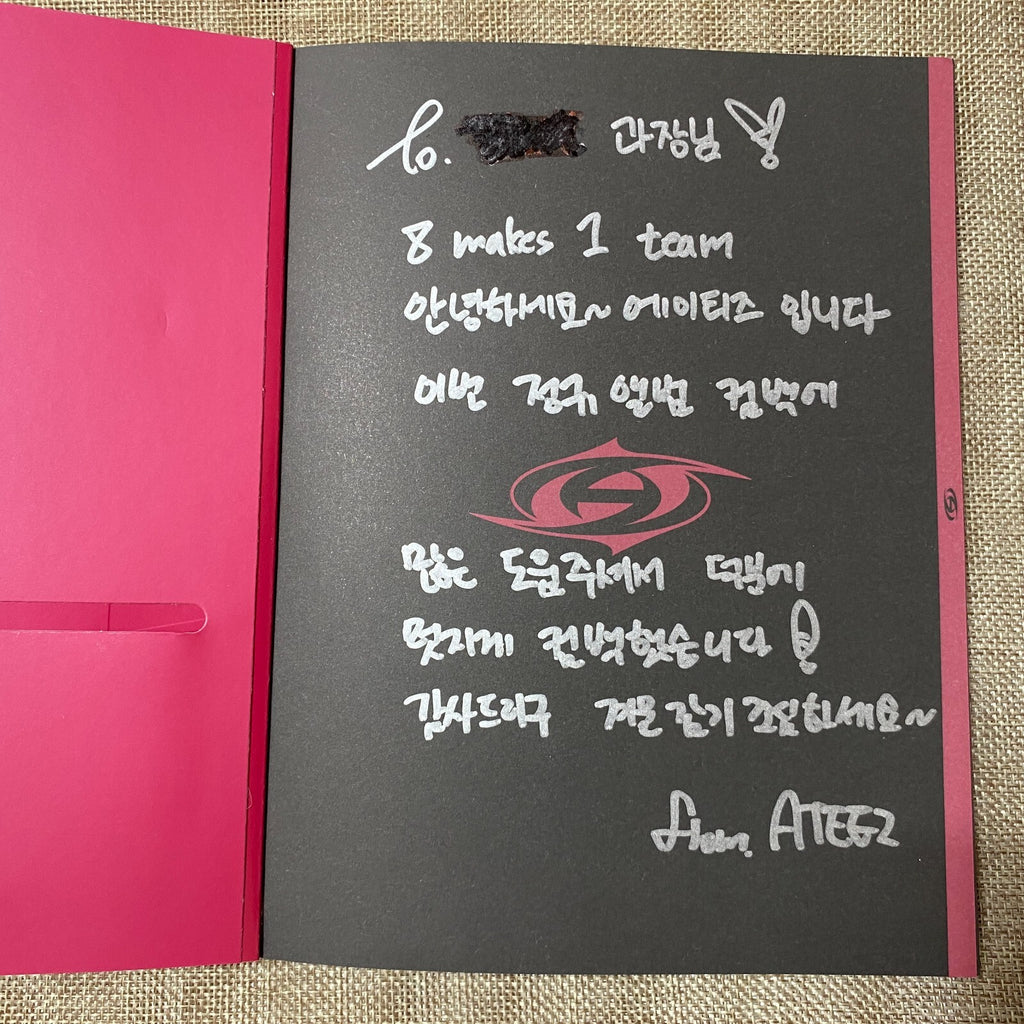 to. 과장님
8 makes 1 team
안녕하세요~ 에이티즈 입니다
이번 정규 앨범 컴백에
많은 도움주셔서 덕분에
멋지게 컴백했습니다!
감사드리구 겨울 감기 조심하세요~
from. ATEEZ